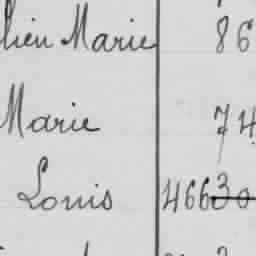 lien Marie 86
Marie 74
Louis 46630